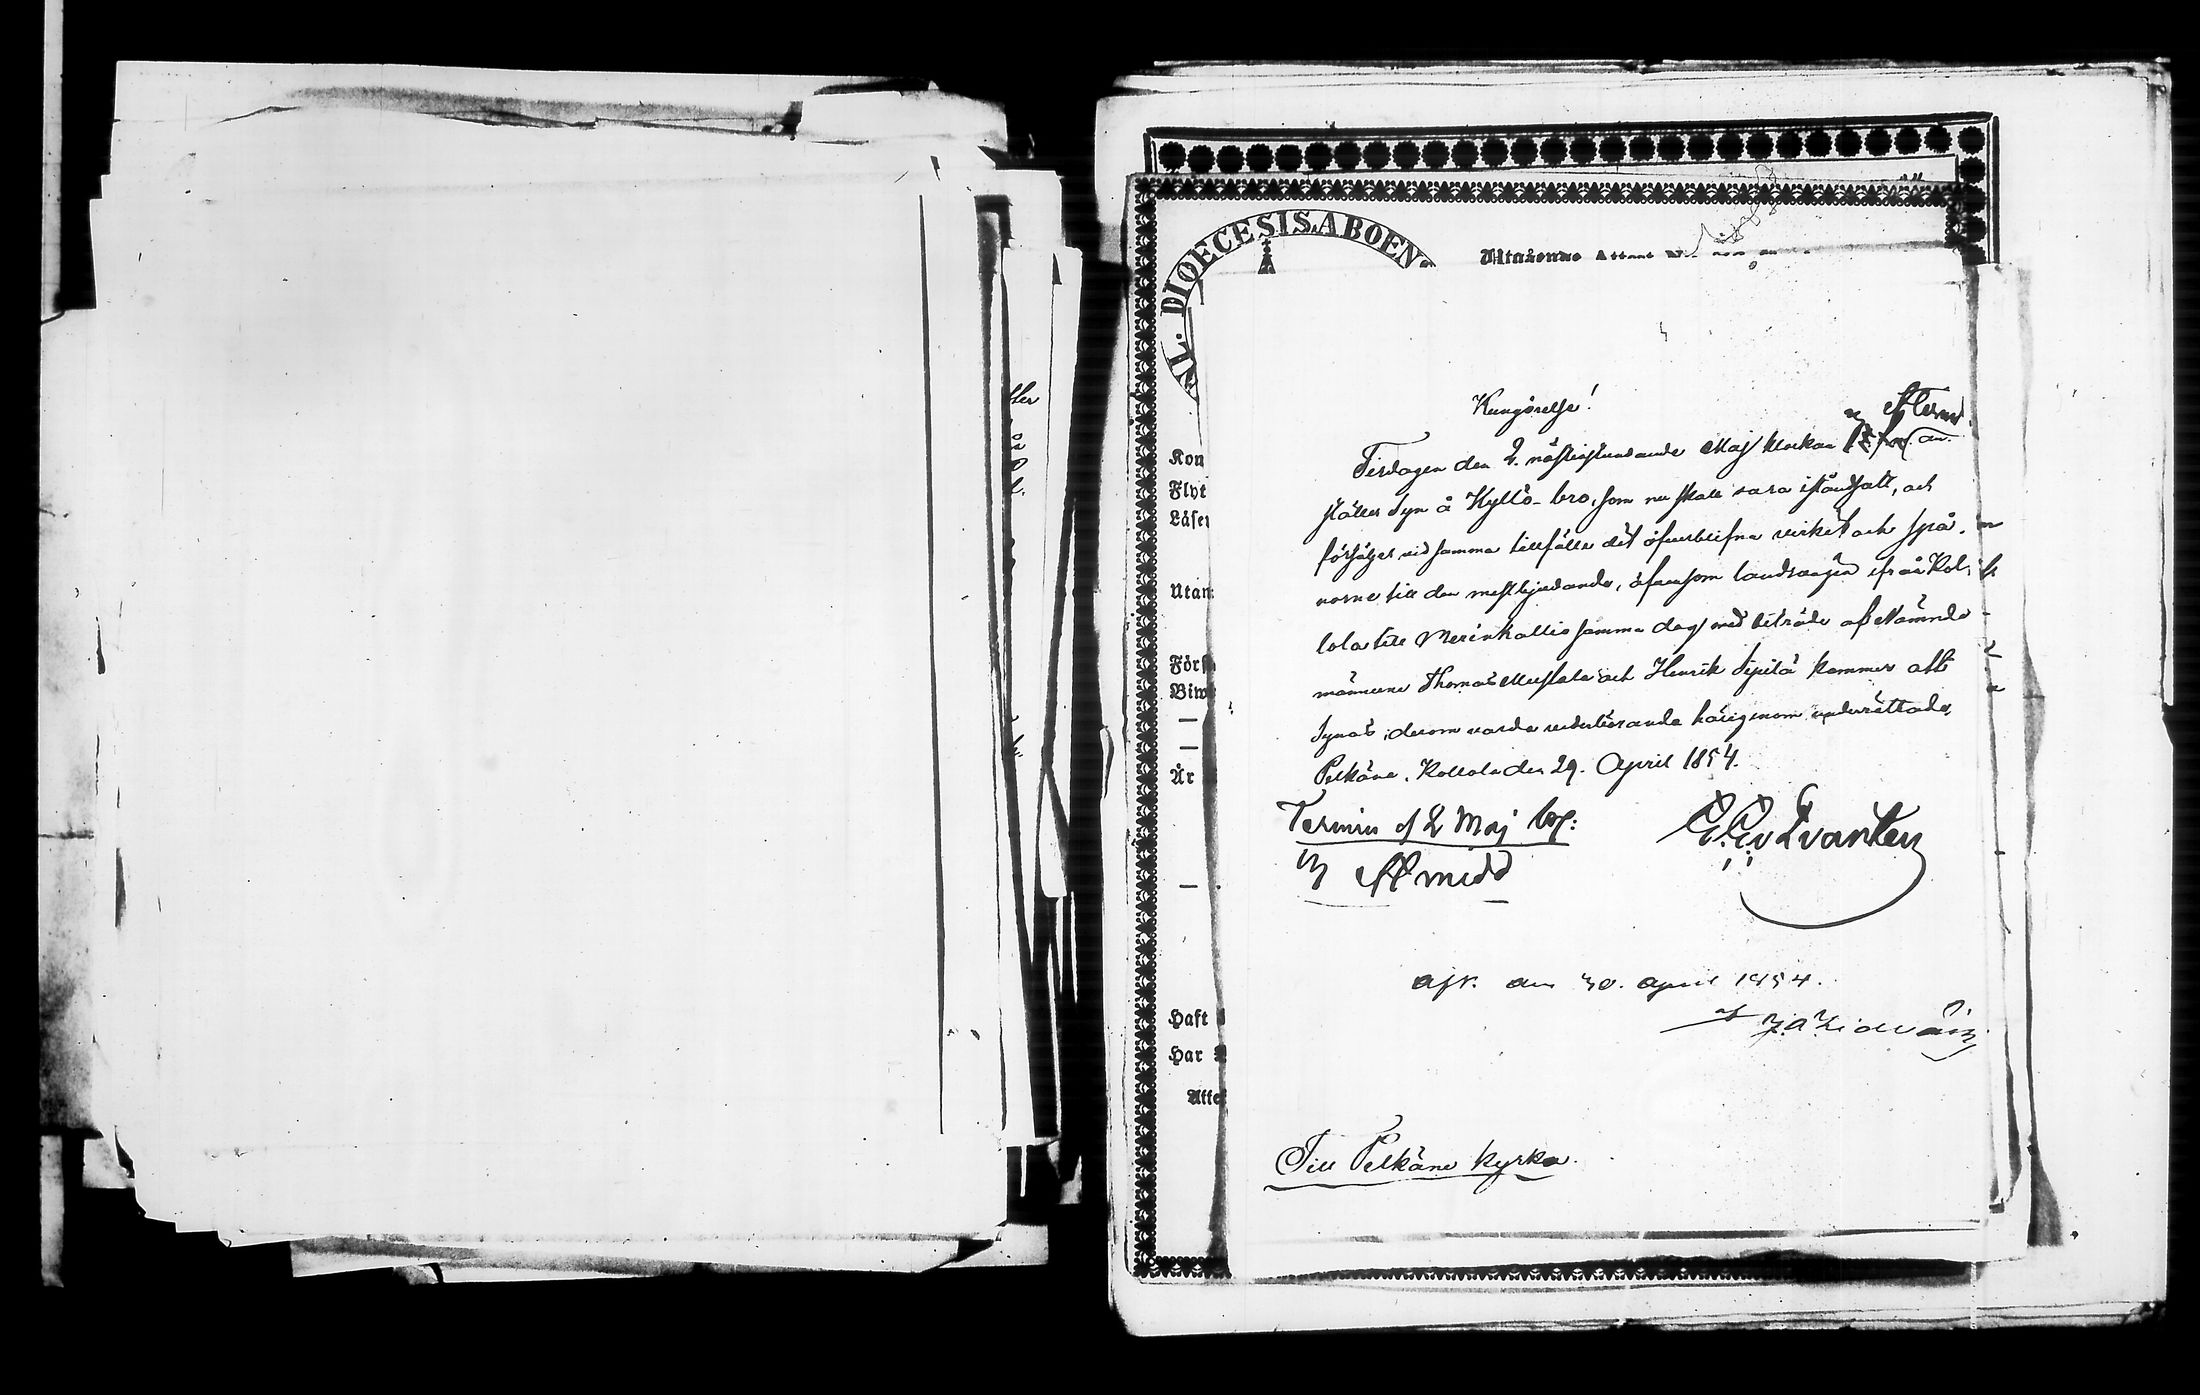 ter
L. DIOECESIS ABOEN
Attest
Kungörelse!
Tisdagen den 2. nästinstundande Maj klockan
ställes Syn å Kyllö- bro, som nu skall vara iståndsatt, och
försäljes vid samma tillfälle det öfverblifna virket och spå-
norne till den mestbjudande, äfvensom landsvägen ifrån Kol-
lola till Merinkallio samma dag med biträde af Nämnde
männerne Thomas Mustala och Henrik Sipilä kommer att
synas, derom varda vederbörande härigenom underrättade,
Pelkäne, Kollola den 29. April 1854.
Termin d 2 Maj
E. E. v Qvanten
afk. den 30. april 1854.
af
Till Pelkäne kyrka.
Kon
Flyt
Läser
Utan
Förs
Biw
—
—
År
—
Haft
Har
Atte